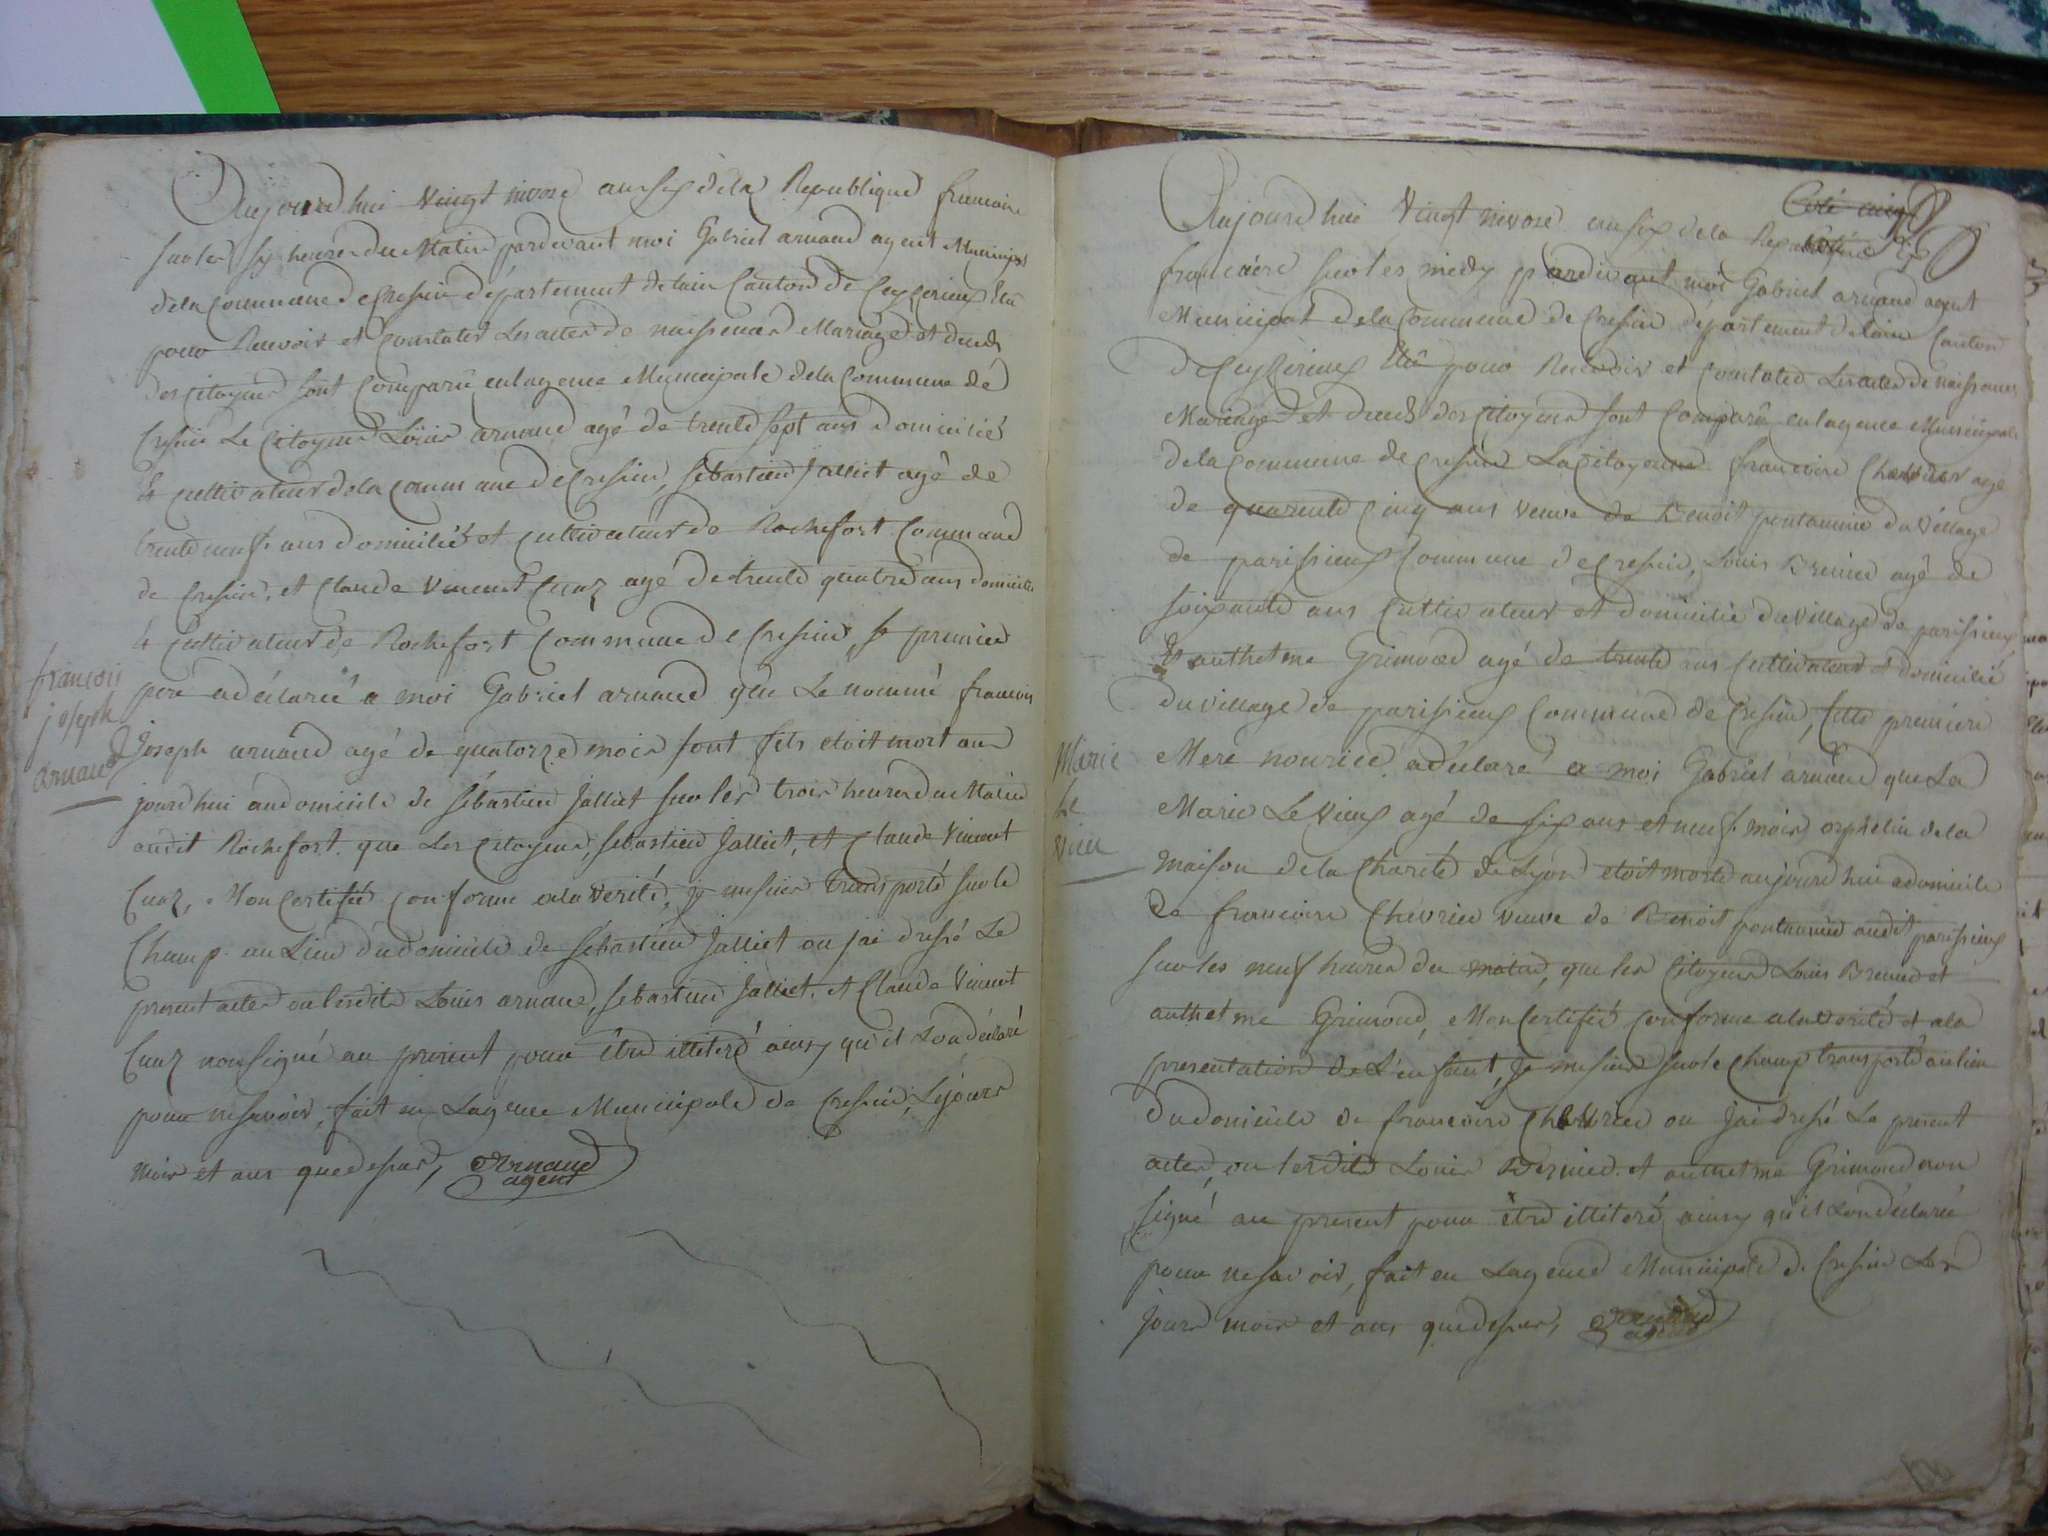 Aujourd hui vingt nivose an six de la Republique francoise
sur les six heures du Matin pardevant moi Gabriel arnaud agent Municipal
de la commune de Cressin département de lain Canton de Ceyzerieux Elu
pour Recevoir et Constater Les actes de naissences Mariages et deces
des citoyens sont Comparu en lagence Municipale de la Commune de
Cressin Le Citoyen Loüis arnaud agé de trente sept ans domicilié
et cultivateur de la commune de Cressin, sebastien Jalliet agé de
trente neuf ans domicilié et cultivateur de Rochefort Commune
de Cressin, et Claude Vincent Cuaz agé de trente quatre ans domicilié
& cultivateur de Rochefort Commune de Cressin, le premier
peré a déclaré a moi Gabriel arnaud que Le nommé francois
Joseph arnaud agé de quatorze mois sont fils etoit mort au
jourd hui au domicile de sébastien Jalliet sur les trois heures du Matin
audit Rochefort que Les citoyens, sebastien Jalliet, et Claude Vincent
Cuaz, Mon Certifié conforme a la Verité, je me suis transporté sur le
Champ au Lieu du domicile de sébastien Jalliet ou jai dressé Le
present acte ou lesdits Loüis arnaud, sebastien Jalliet, et Claude Vincent
Cuaz non signé au present pour être illiteré ainsy qu'il Lon déclaré
pour ne savoir, fait en Lagence Municipale de Cressin, Le jour
mois et ans que dessus, Arnaud
agent
francois
joseph
arnaud
Coté cinq
Aujourd hui Vingt nivose an six de la Republique
francaise sur les midy pardevant moi Gabriel arnaud agent
Municipal de la Commune de Cressin département de lain Canton
de Ceyzerieux Elû pour Recevoir et Constater Les actes de naissances
Mariages et deces des citoyens sont Comparu en lagence Municipale
de la Commune de Cressin La citoyenne francoise Chevrier agé
de quarente cinq ans veuve de Benoit pontannier du Village
de parissieux Commune de Cressin, Louis Brunet agé de
soixante ans Cultivateur et domicilié du village de parissieux
Et anthelme Grimond agé de trente ans Cultivateur et domicilié
du village de parissieux Commune de Cressin, cette premiere
Mere nourice a déclaré a moi Gabriel arnaud que La
Marie Le Vieux agé de six ans et neuf mois orphelin de la
maison de la Charité de Lyon etoit morte aujourd hui a domicile
de francoise Chevrier veuve de Benoit pontannier audit parissieux
sur les neuf heures du matin, que les Citoyens Louis Brunet et
anthelme Grimond, Mon Certifié conforme a la verité et a la
presentation de L'enfant, Je me suis sur le champ transporté au lieu
du domicile de francoise Chevrier ou jai dressé Le present
acte, ou lesdits Louis Brunet et anthelme Grimond non
signé au present pour être illiteré ainsy qu'il Lon déclaré
pour ne savoir, fait en Lagence Municipale de Cressin Les
jours mois et ans que dessus, Arnaud
agent
Marie
Le
Vieu